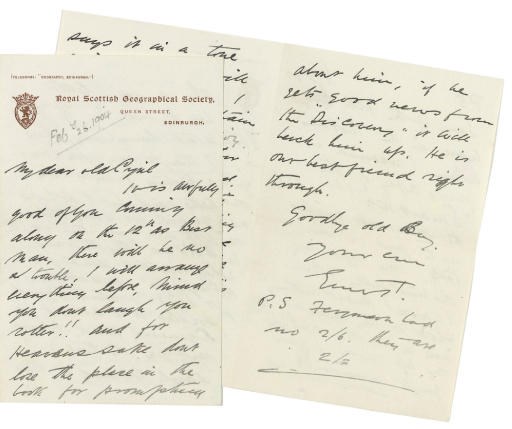 (TELEGRAMS: "GEOGRAPHY, EDINBURGH.")
Royal Scottish Geographical Society,
QUEEN STREET,
EDINBURGH.
Feby 23. 1904
My dear old Cyril
It is awfully
good of you coming
along on the 12th as Best
man, there will be no
trouble, I will arrange
everything before, mind
you dont laugh you
rotter!! and for
Heavens sake dont
lose the place in the
book for prompting
says it in a tone
will
about him, if he
gets good news from
the "Discovery" it will
buck him up. He is
our best friend right
through.
Goodbye old Boy.
Your
Ernst.
P.S. had
no 2/6. they are
2/2